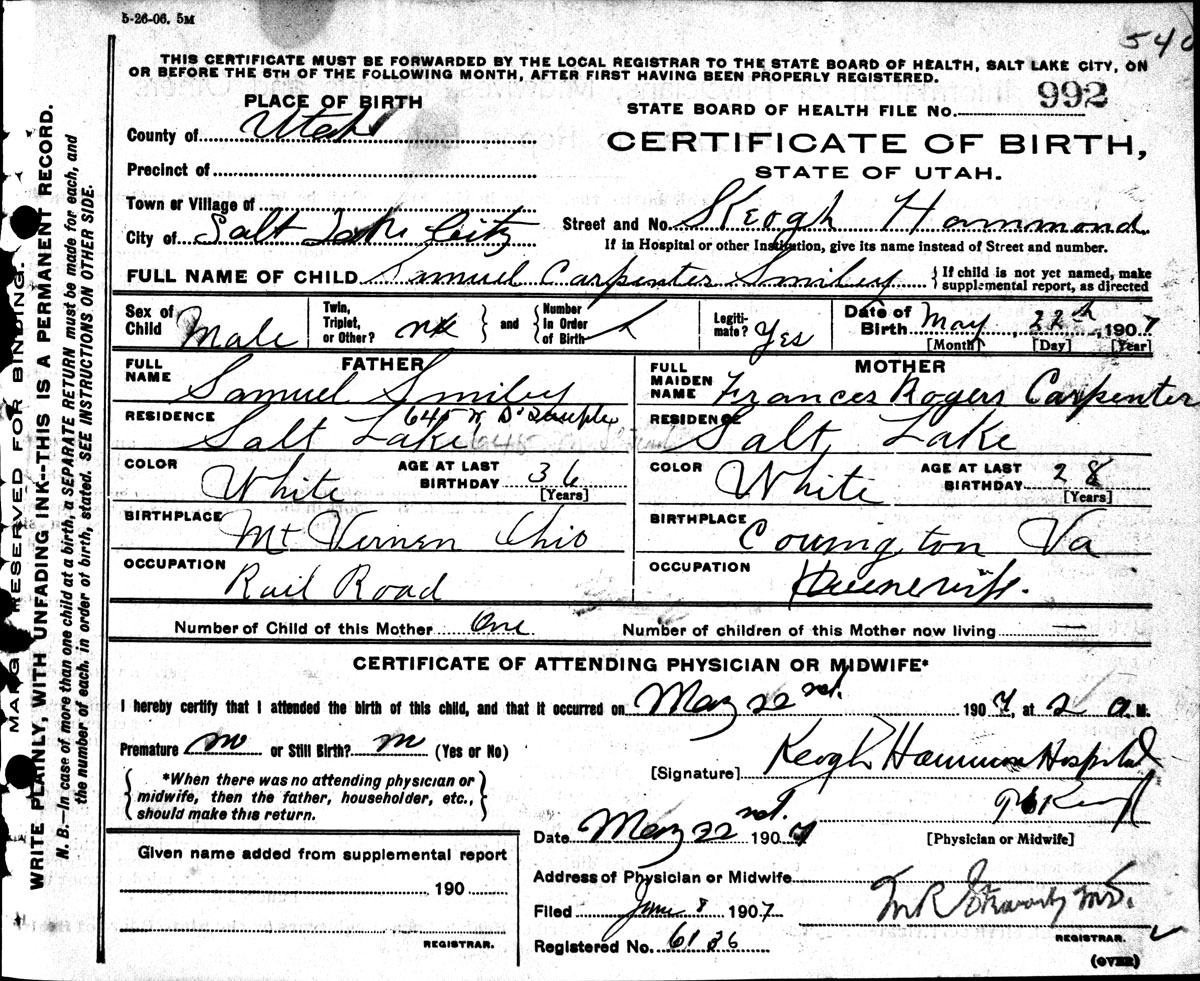 5-26-06. 5M
540
THIS CERTIFICATE MUST BE FORWARDED BY THE LOCAL REGISTRAR TO THE STATE BOARD OF HEALTH, SALT LAKE CITY, ON
OR BEFORE THE 5TH OF THE FOLLOWING MONTH, AFTER FIRST HAVING BEEN PROPERLY REGISTERED.
PLACE OF BIRTH
STATE BOARD OF HEALTH FILE No. 992
County of Utah
CERTIFICATE OF BIRTH,
STATE OF UTAH.
Precinct of
Town or Village of
City of Salt Lake City
Street and No. Keogh Hammond
If in Hospital or other Institution, give its name instead of Street and number.
FULL NAME OF CHILD Samuel Carpenter Smiley
If child is not yet named, make
supplemental report, as directed
Sex of Child Male
Twin, Triplet, or Other?
and
Number in Order of Birth 1
Legiti-mate? Yes
Date of Birth May, 22, 1907
[Month] [Day] [Year]
FATHER
FULL NAME Samuel Smiley
RESIDENCE Salt Lake 645 W
COLOR White
AGE AT LAST BIRTHDAY 36
[Years]
BIRTHPLACE Mt Vernon Ohio
OCCUPATION Rail Road
MOTHER
FULL MAIDEN NAME Frances Rogers Carpenter
RESIDENCE Salt Lake
COLOR White
AGE AT LAST BIRTHDAY 28
[Years]
BIRTHPLACE Covington Va
OCCUPATION Housewife.
Number of Child of this Mother One
Number of children of this Mother now living —
CERTIFICATE OF ATTENDING PHYSICIAN OR MIDWIFE*
I hereby certify that I attended the birth of this child, and that it occurred on May 22nd. 1907, at 2 a.M.
Premature no or Still Birth? no (Yes or No)
*When there was no attending physician or
midwife, then the father, householder, etc.,
should make this return.
[Signature] Keogh Hammon Hospital
Date May 22nd. 1907
[Physician or Midwife]
Given name added from supplemental report
190
REGISTRAR.
Address of Physician or Midwife
Filed June 8 1907
M.D.
Registered No. 6136
REGISTRAR.
(OVER)
MARG RESERVED FOR BINDING.
WRITE PLAINLY, WITH UNFADING INK--THIS IS A PERMANENT RECORD.
N. B.—In case of more than one child at a birth, a SEPARATE RETURN must be made for each, and
the number of each, in order of birth, stated. SEE INSTRUCTIONS ON OTHER SIDE.